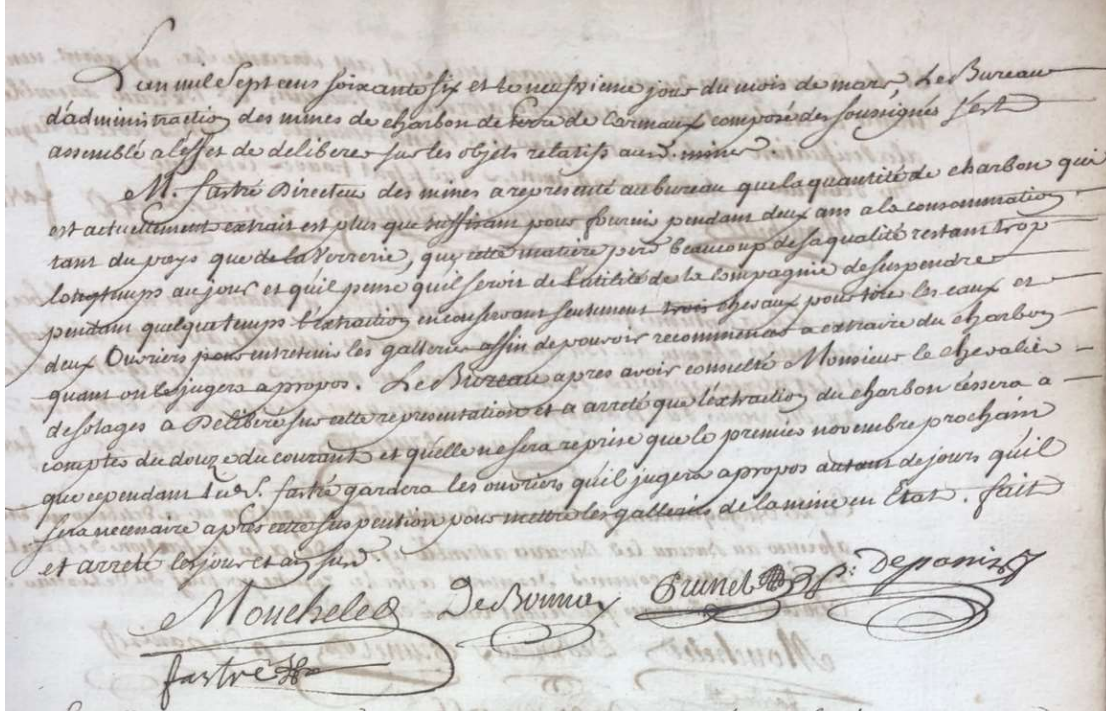 L'an mil sept cens soixante six et le neufvieme jour du mois de mars, Le Bureau
d'administraction des mines de charbon de terre de Carmaux composé des soussignés s'est
assemblé a l'effet de deliberer sur les objets relatifs auxd. mines
M. fastré Directeur des mines a representé au bureau que la quantité de charbon qui
est actuellement extrait est plus que suffisant pour fournir pendant deux ans a la consommation
tant du pays que de la Verrerie, que cette matiere perd beaucoup de sa qualité restant trop
longtemps au jour et qu'il pense qu'il seroit de l'utilité de la Compagnie de suspendre
pendant quelque temps l'extraction en conservant seulement trois chevaux pour tirer les eaux et
deux Ouvriers pour entretenir les galleries affin de pouvoir recommencer a extraire du charbon
quant on le jugera a propos. Le Bureau apres avoir consulté Monsieur le chevalier
de solages a Deliberé sur cette representation et a arreté que l'extraction du charbon cessera a
compter du douze du courant et qu'elle ne sera reprise que le premier novembre prochain
que cependant led. S. fastré gardera les ouvriers qu'il jugera a propos autant de jours qu'il
sera necessaire apres cette suspention pour mettre les galleries de la mine en Etat. fait
et arreté les jour et an susd.
Moucheled De Bonnay Brunet Depaniz
fastré